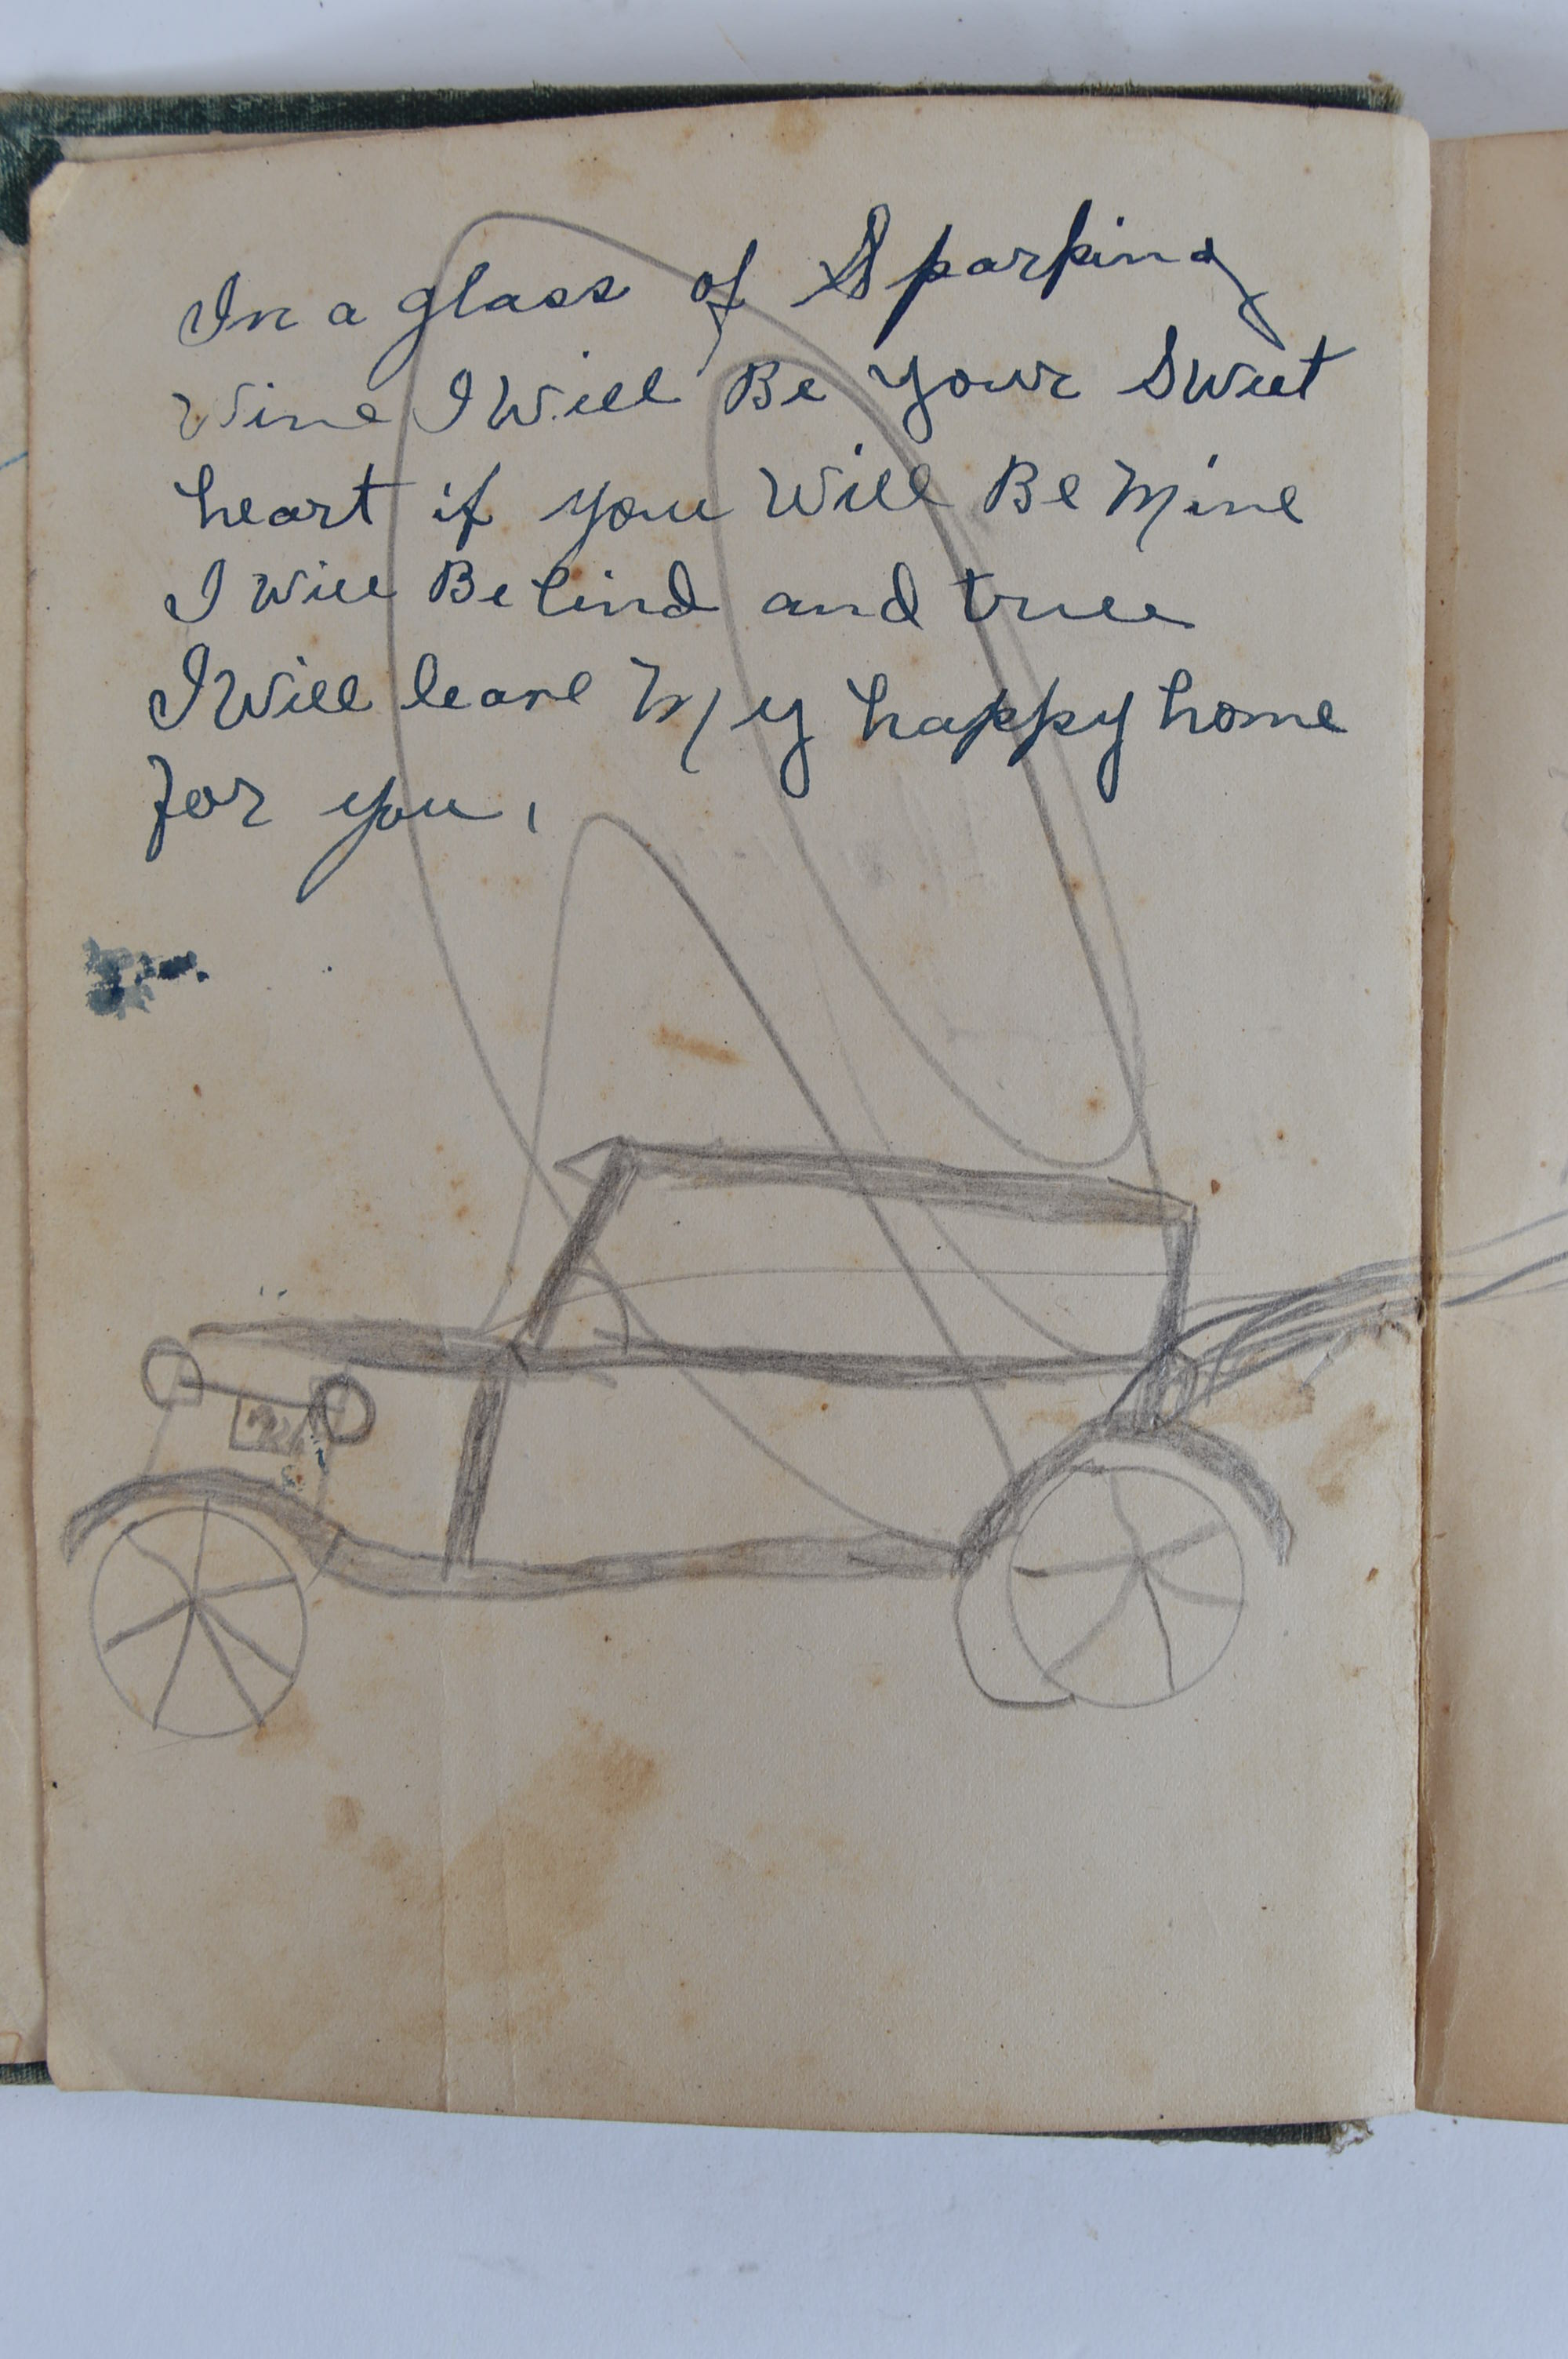 In a glass of Sparking
Wine I Will Be your Sweet
heart if you Will Be Mine
I Will Be kind and true
I Will leave My happy home
for you,